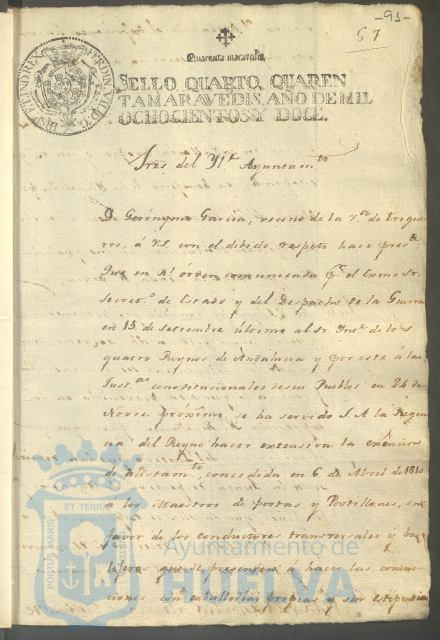 -95-
57
Quarenta maravedis.
SELLO QUARTO, QUAREN
TAMARAVEDIS, AÑO DE MIL
OCHOCIENTOS Y DOCE.
Sres. del Yl.e Ayuntam.to
D. Gerónymo Garcia, vecino de la v.a de Trigue
ros, á VS con el debido respeto hace pres.te
Que en Rl orden comunicada p.r el Exmo Sr.
Secret.o de Estado y del Despacho de la Guerra
en 15 de Setiembre ultimo al Sr. de los
quatro Reynos de Andalucia y por este á las
Just.as constitucionales de sus Pueblos en 24 de
Novre proximo se ha servido S.A la Regen
cia del Reyno hacer extensiva la exêncion
de alistam.to concedida en 6 de Abril de 1810
á los Maestros de postas y Postillones, en
favor de los conductores transversales y ba
lijeros que se presenten á hacer las conduc
ciones con caballerias propias y sin estipendio
PORTUS MARIS ET TERRAE
Ayuntamiento de
HUELVA